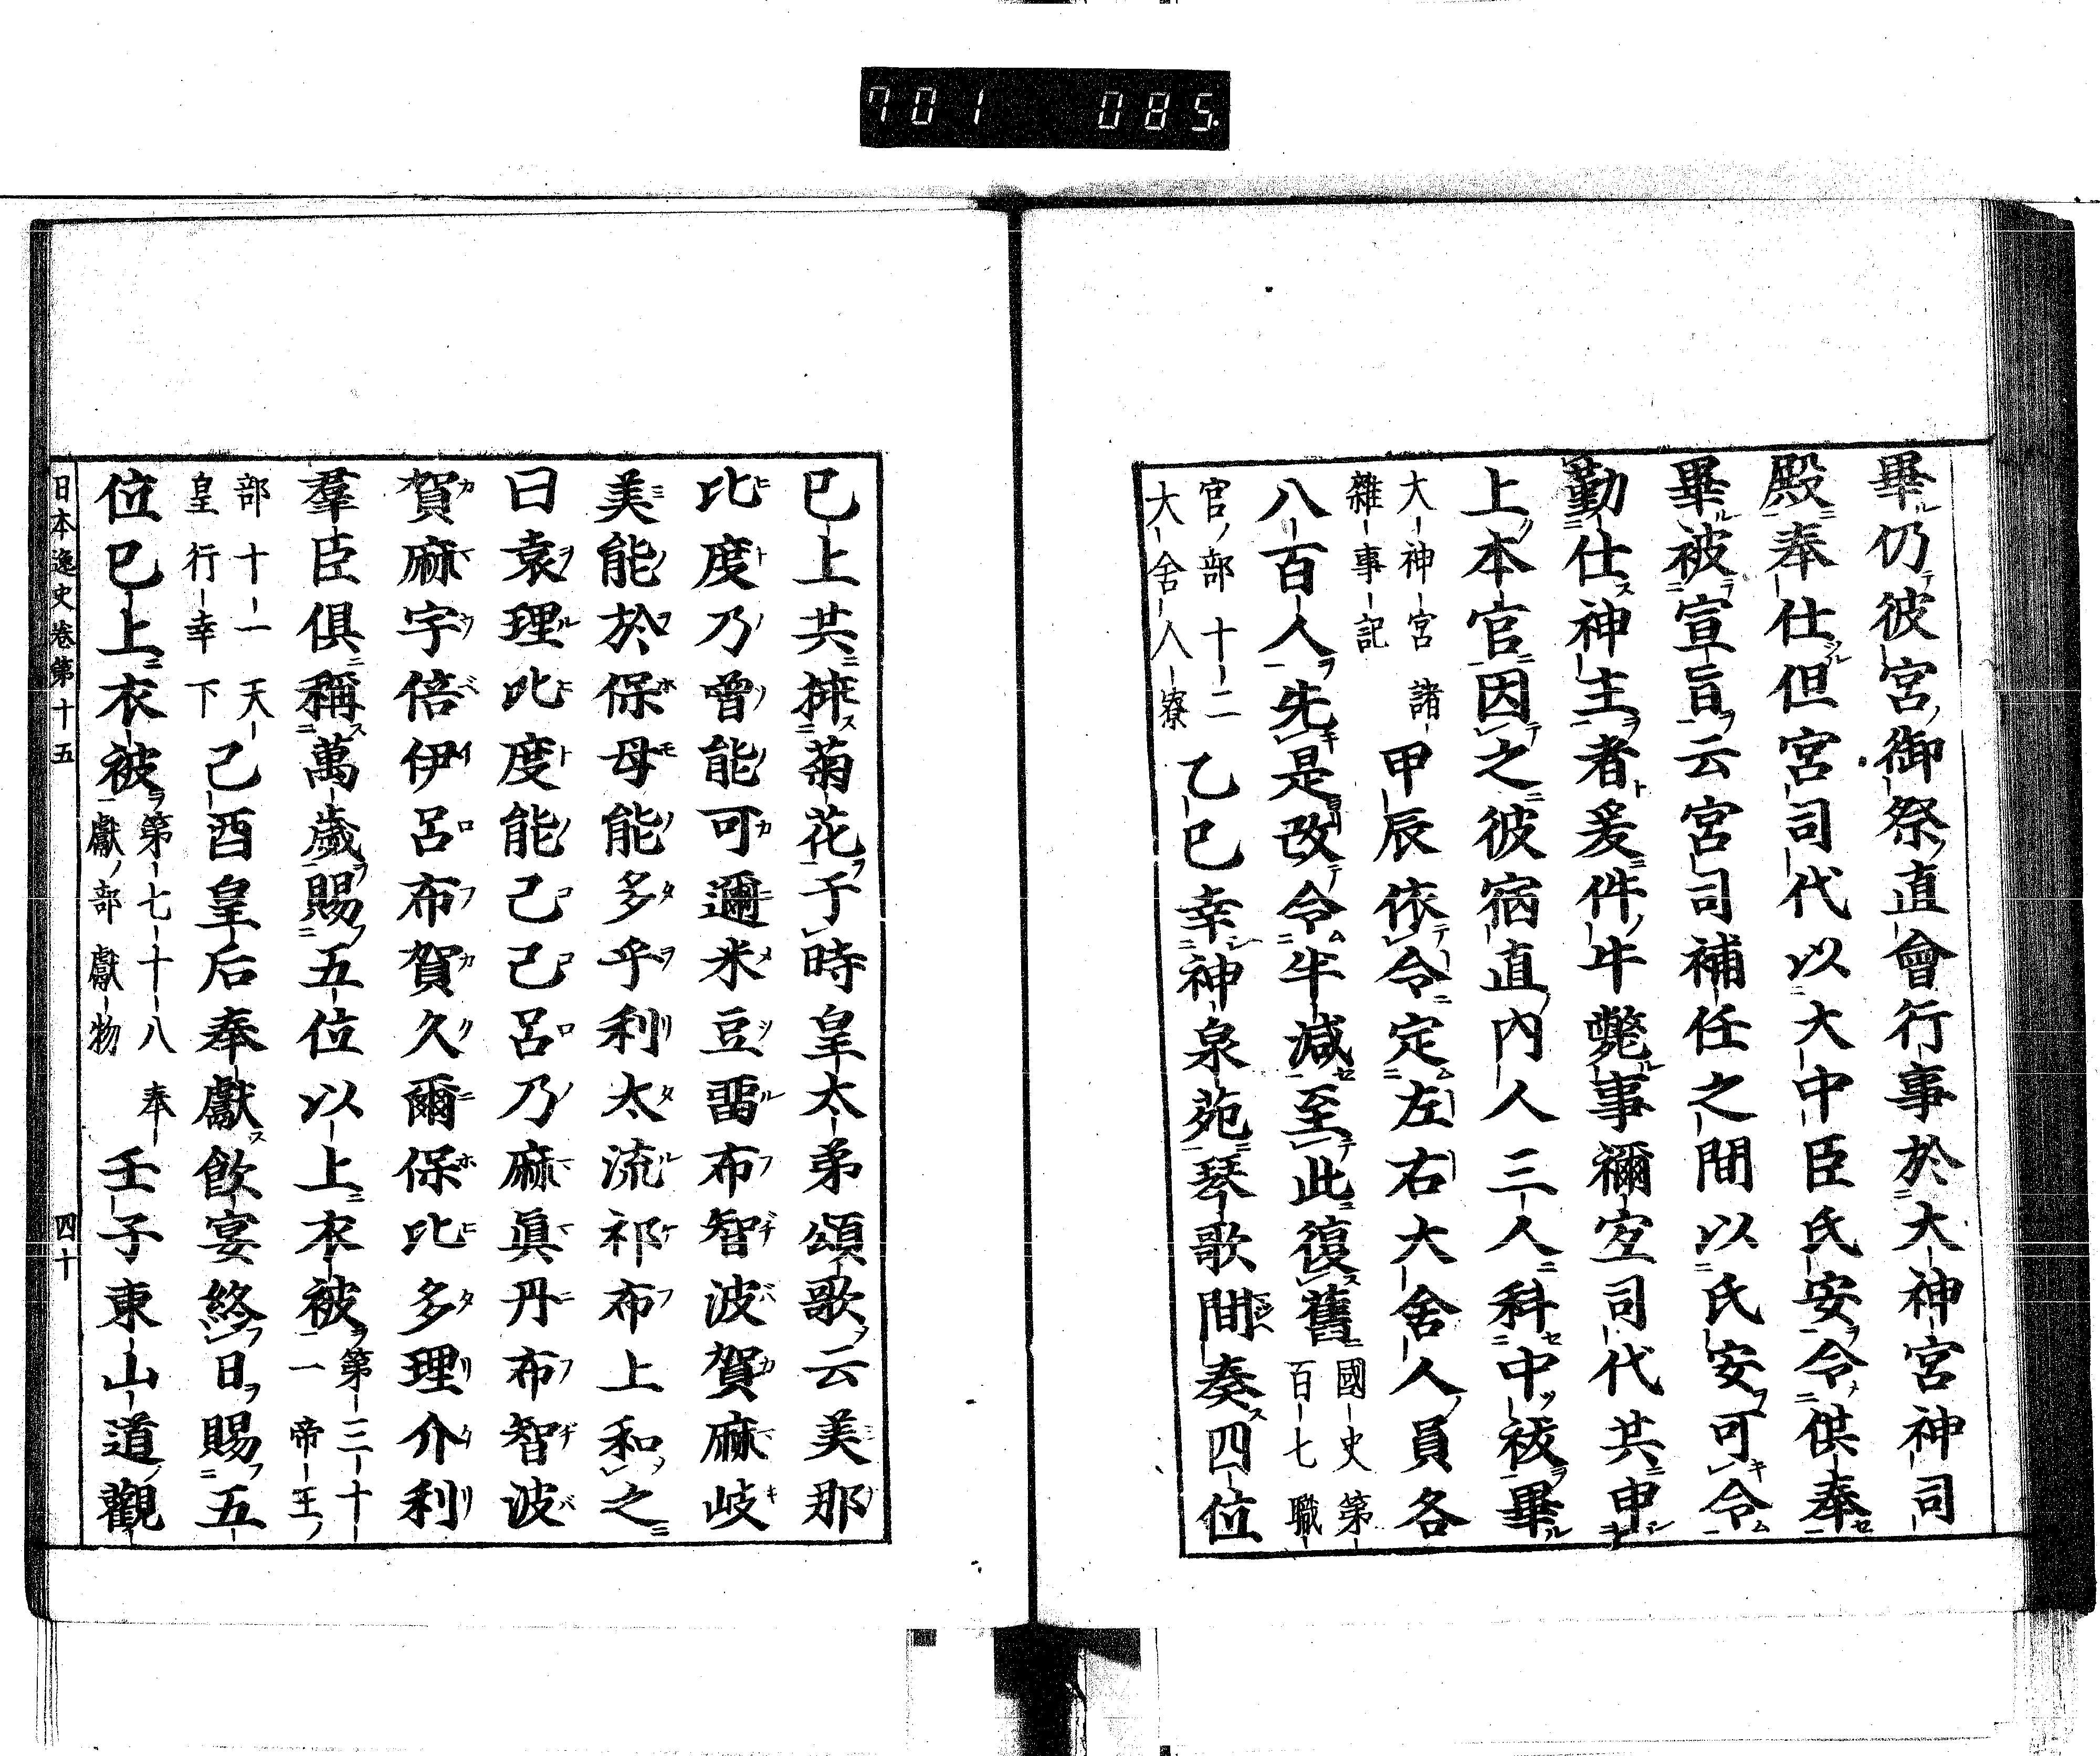 701 085.
畢仍彼宮御祭直會行事於大神宮神司
殿奉仕但宮司代以大中臣氏安令供奉
畢被宣旨云宮司補任之間以氏安可令
勤仕神主者爰件牛斃事禰宜司代共申
上本官因之彼宿直內人三人科中祓畢
大神宮諸
雜事記
甲辰依令定左右大舍人員各
八百人先是改令半減至此復舊
國史第
百七職
官部十二
大舍人寮
乙巳幸神泉苑琴歌間奏四位
已上共挿菊花于時皇太弟頌歌云美那
比度乃曾能可邇米豆留布智波賀麻岐
美能於保母能多乎利太流祁布上和之
曰袁理比度能己己呂乃麻眞丹布智波
賀麻宇倍伊呂布賀久爾保比多理介利
羣臣俱稱萬歲賜五位以上衣被
第三十
一帝王
部十一天
皇行幸下
己酉皇后奉獻飮宴終日賜五
位已上衣被
第七十八奉
獻部獻物
壬子東山道觀
日本逸史卷第十五 四十